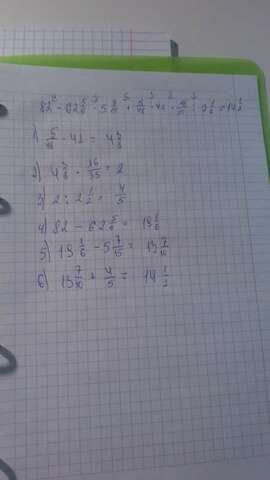 82 - 62 5/6 - 5 7/15 + 5/48 · 42 · 16/35 : 2 1/2 = 14 1/2
1) 5/48 · 42 = 4 3/8
2) 4 3/8 · 16/35 = 2
3) 2 : 2 1/2 = 4/5
4) 82 - 62 5/6 = 19 1/6
5) 19 1/6 - 5 7/15 = 13 7/10
6) 13 7/10 + 4/5 = 14 1/2